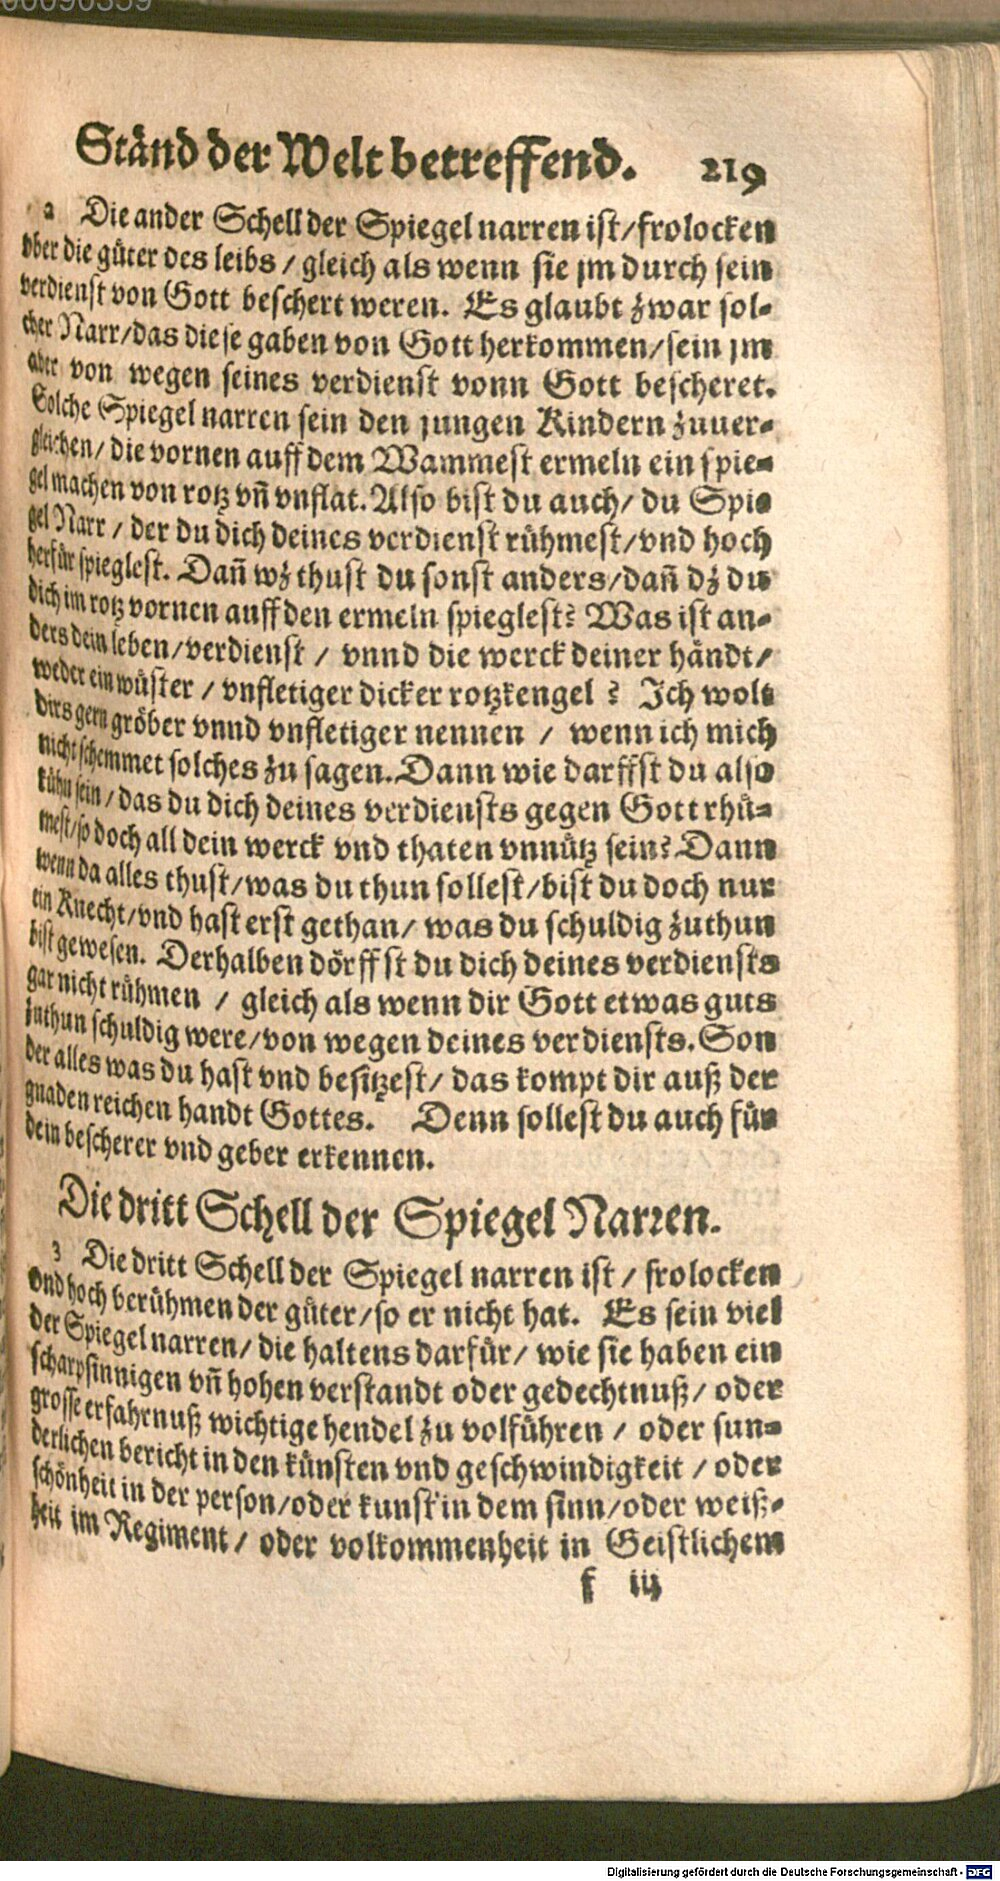 Ständ der Welt betreffend. 219
2 Die ander Schell der Spiegel narren ist/ frolocken
vber die güter des leibs / gleich als wenn sie jm durch sein
verdienst von Gott beschert weren. Es glaubt zwar sol-
cher Narr/ das diese gaben von Gott herkommen/ sein jm
aber von wegen seines verdienst vonn Gott bescheret.
Solche Spiegel narren sein den jungen Kindern zuuer-
gleichen/ die vornen auff dem Wammest ermeln ein spie-
gel machen von rotz vn̄ vnflat. Also bist du auch/ du Spie
gel Narr / der du dich deines verdienst rühmest/ vnd hoch
herfür spieglest. Dan̄ wz thust du sonst anders/ dan̄ dz du
dich im rotz vornen auff den ermeln spieglest? Was ist an-
ders dein leben/ verdienst / vnnd die werck deiner händt/
weder ein wüster / vnfletiger dicker rotzkengel ? Ich wolt
dirs gern gröber vnnd vnfletiger nennen / wenn ich mich
nicht schemmet solches zu sagen. Dann wie darffst du also
kühn sein/ das du dich deines verdiensts gegen Gott rhü-
mest/ so doch all dein werck vnd thaten vnnütz sein? Dann
wenn da alles thust/ was du thun sollest/ bist du doch nur
ein Knecht/ vnd hast erst gethan/ was du schuldig zuthun
bist gewesen. Derhalben dörffst du dich deines verdiensts
gar nicht rühmen / gleich als wenn dir Gott etwas guts
zuthun schuldig were/ von wegen deines verdiensts. Son
der alles was du hast vnd besitzest/ das kompt dir auß der
gnaden reichen handt Gottes. Denn sollest du auch für
dein bescherer vnd geber erkennen.
Die dritt Schell der Spiegel Narren.
3 Die dritt Schell der Spiegel narren ist / frolocken
vnd hoch berühmen der güter/ so er nicht hat. Es sein viel
der Spiegel narren/ die haltens darfür/ wie sie haben ein
scharpsinnigen vn̄ hohen verstandt oder gedechtnuß/ oder
grosse erfahrnuß wichtige hendel zu volführen / oder sun-
derlichen bericht in den künsten vnd geschwindigkeit / oder
schönheit in der person/ oder kunst in dem sinn/ oder weiß-
heit im Regiment/ oder volkommenheit in Geistlichem
f iij
Digitalisierung gefördert durch die Deutsche Forschungsgemeinschaft - DFG